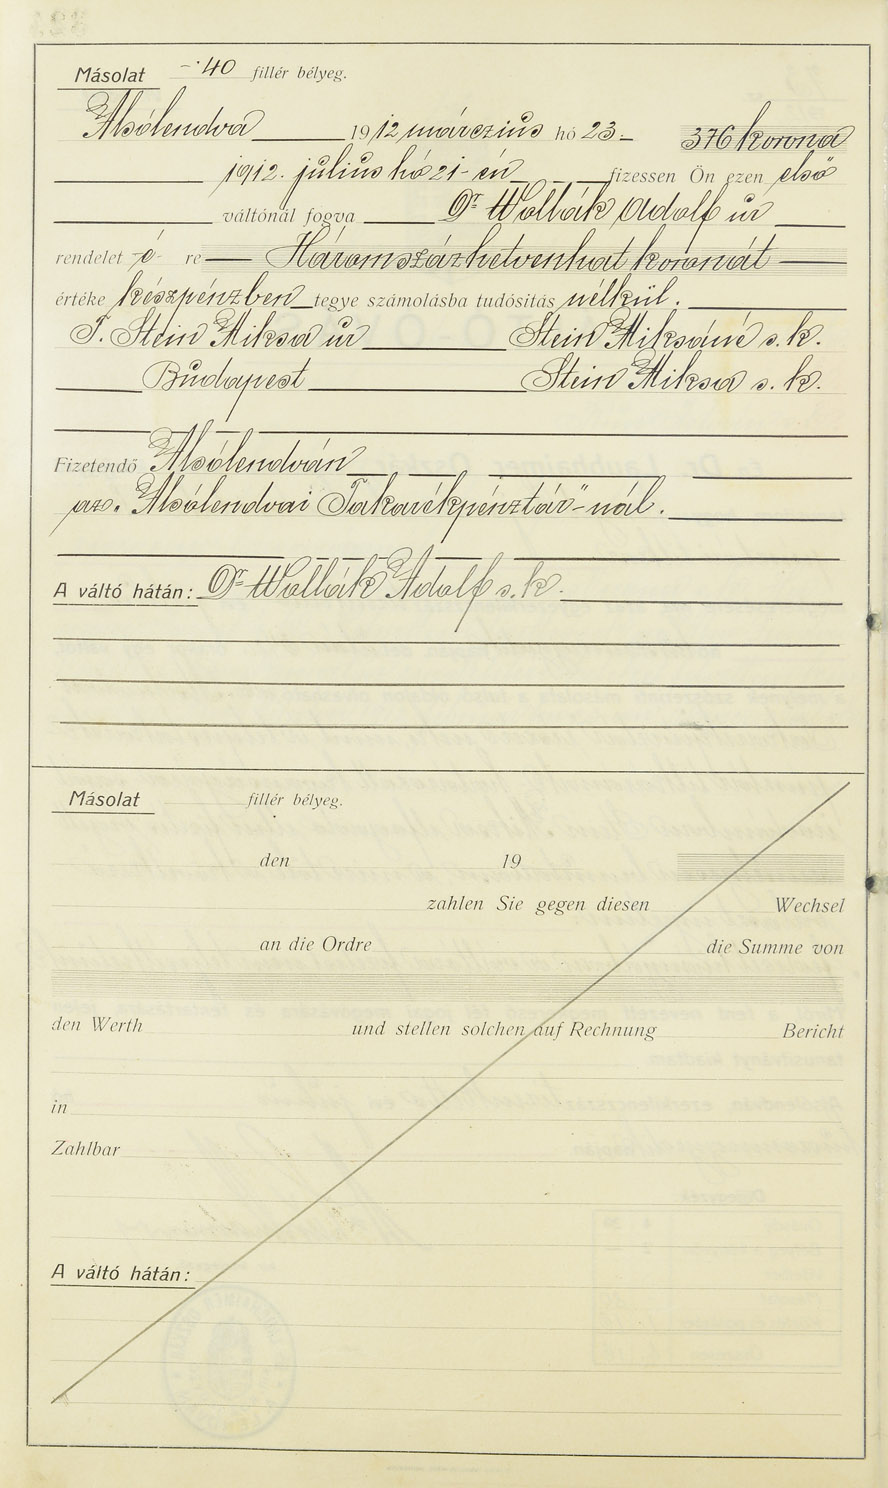 Másolat -·40 fillér bélyeg.
Alsólendva 1912 márczius hó 23.- 376 korona
1912. július hó 21-én fizessen Ön ezen első
váltónál fogva Dr Wollák Adolf úr
rendelet -é- re Háromszázhetvenhat koronát
értéke készpénzben tegye számolásba tudósítás nélkül.
T. Stein Miksa úr Stein Miksáné s. k.
Budapest Stein Miksa s. k.
Fizetendő Alsólendván
az „Alsólendvai Takarékpénztár"-nál.
A váltó hátán: Dr Wollák Adolf s. k.
Másolat fillér bélyeg.
den 19
zahlen Sie gegen diesen Wechsel
an die Ordre die Summe von
den Werth und stellen solchen auf Rechnung Bericht
in
Zahlbar
A váltó hátán: